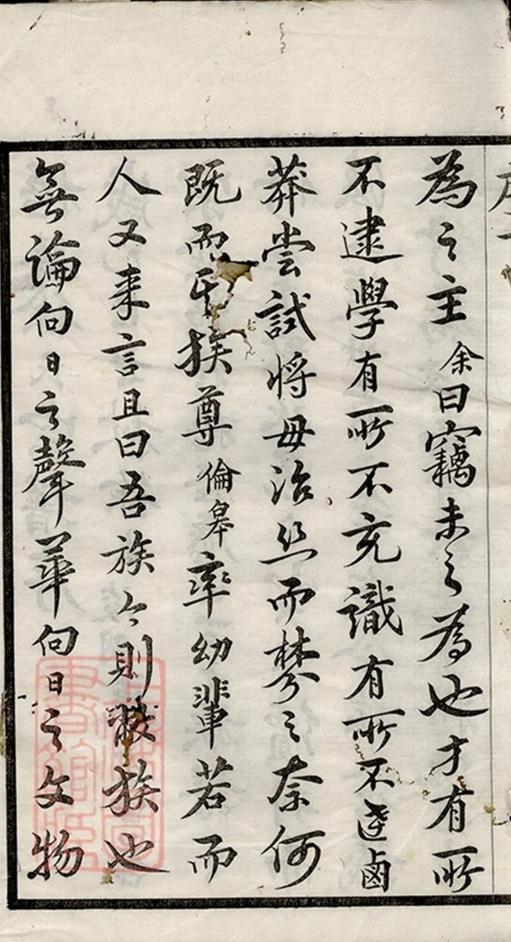 為之主余曰竊未之為也才有所
不逮學有所不充識有所不逮鹵
莽嘗試將毋治絲而棼之奈何
既而其族尊倫皋率幼輩若而
人又来言且曰吾族今則殘族也
無論向日之聲華向日之文物